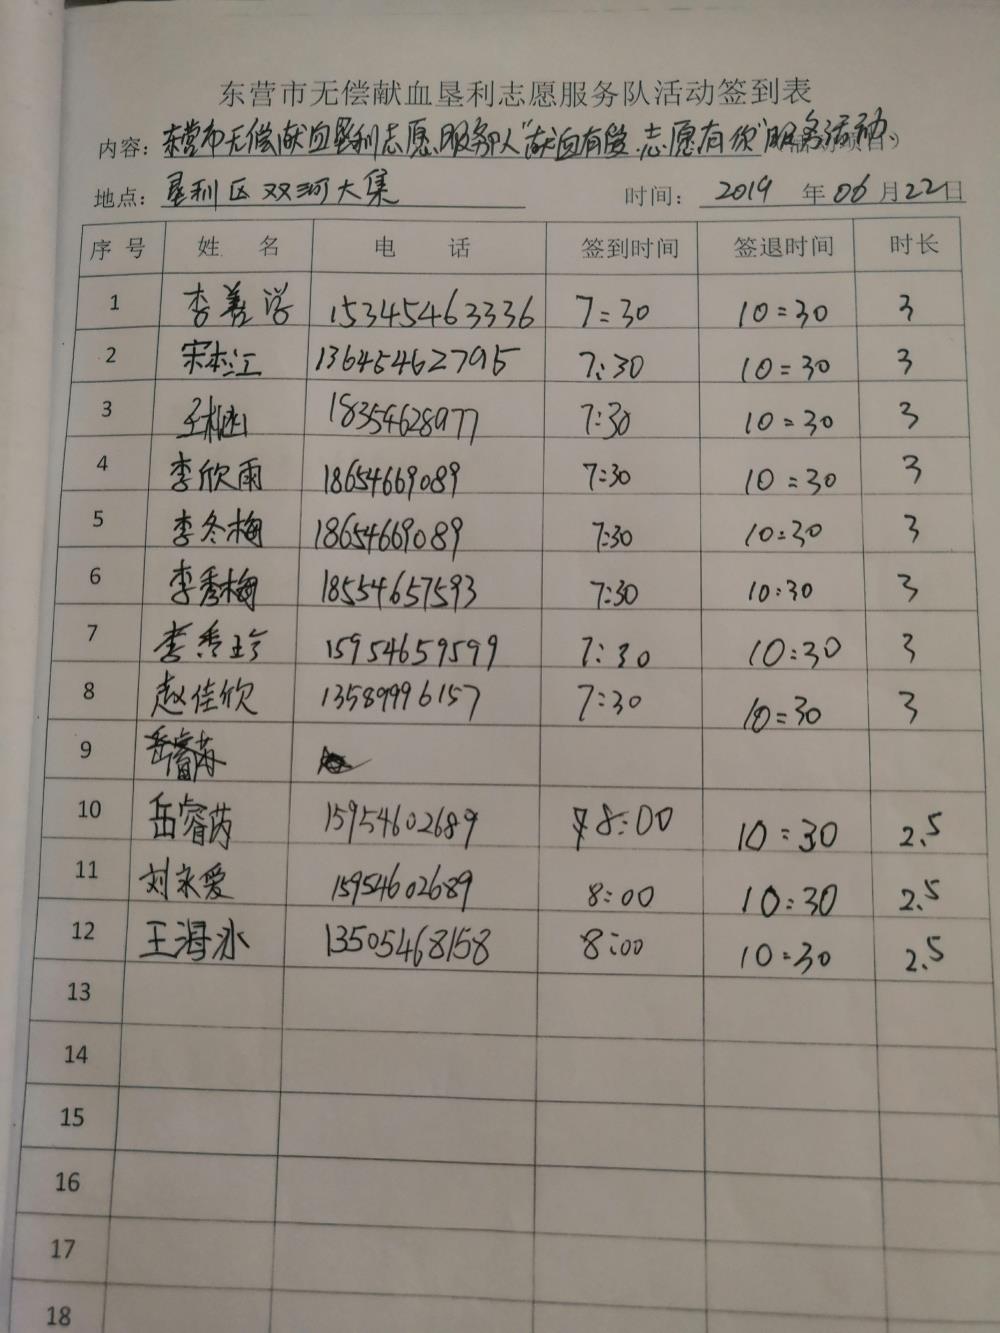 东营市无偿献血垦利志愿服务队活动签到表
内容：东营市无偿献血垦利志愿服务队"献血有爱 志愿有你"服务活动
地点：垦利区双河大集 时间：2019年06月22日
序号 姓名 电话 签到时间 签退时间 时长
1 李善学 15345463336 7:30 10:30 3
2 宋本江 13645462795 7:30 10:30 3
3 18354628977 7:30 10:30 3
4 李欣雨 18654669089 7:30 10:30 3
5 李冬梅 18654669089 7:30 10:30 3
6 李秀梅 18554657593 7:30 10:30 3
7 李秀珍 15954659599 7:30 10:30 3
8 赵佳欣 13589996157 7:30 10:30 3
9 岳睿芮
10 岳睿芮 15954602689 8:00 10:30 2.5
11 刘永爱 15954602689 8:00 10:30 2.5
12 王海冰 13505468158 8:00 10:30 2.5
13
14
15
16
17
18